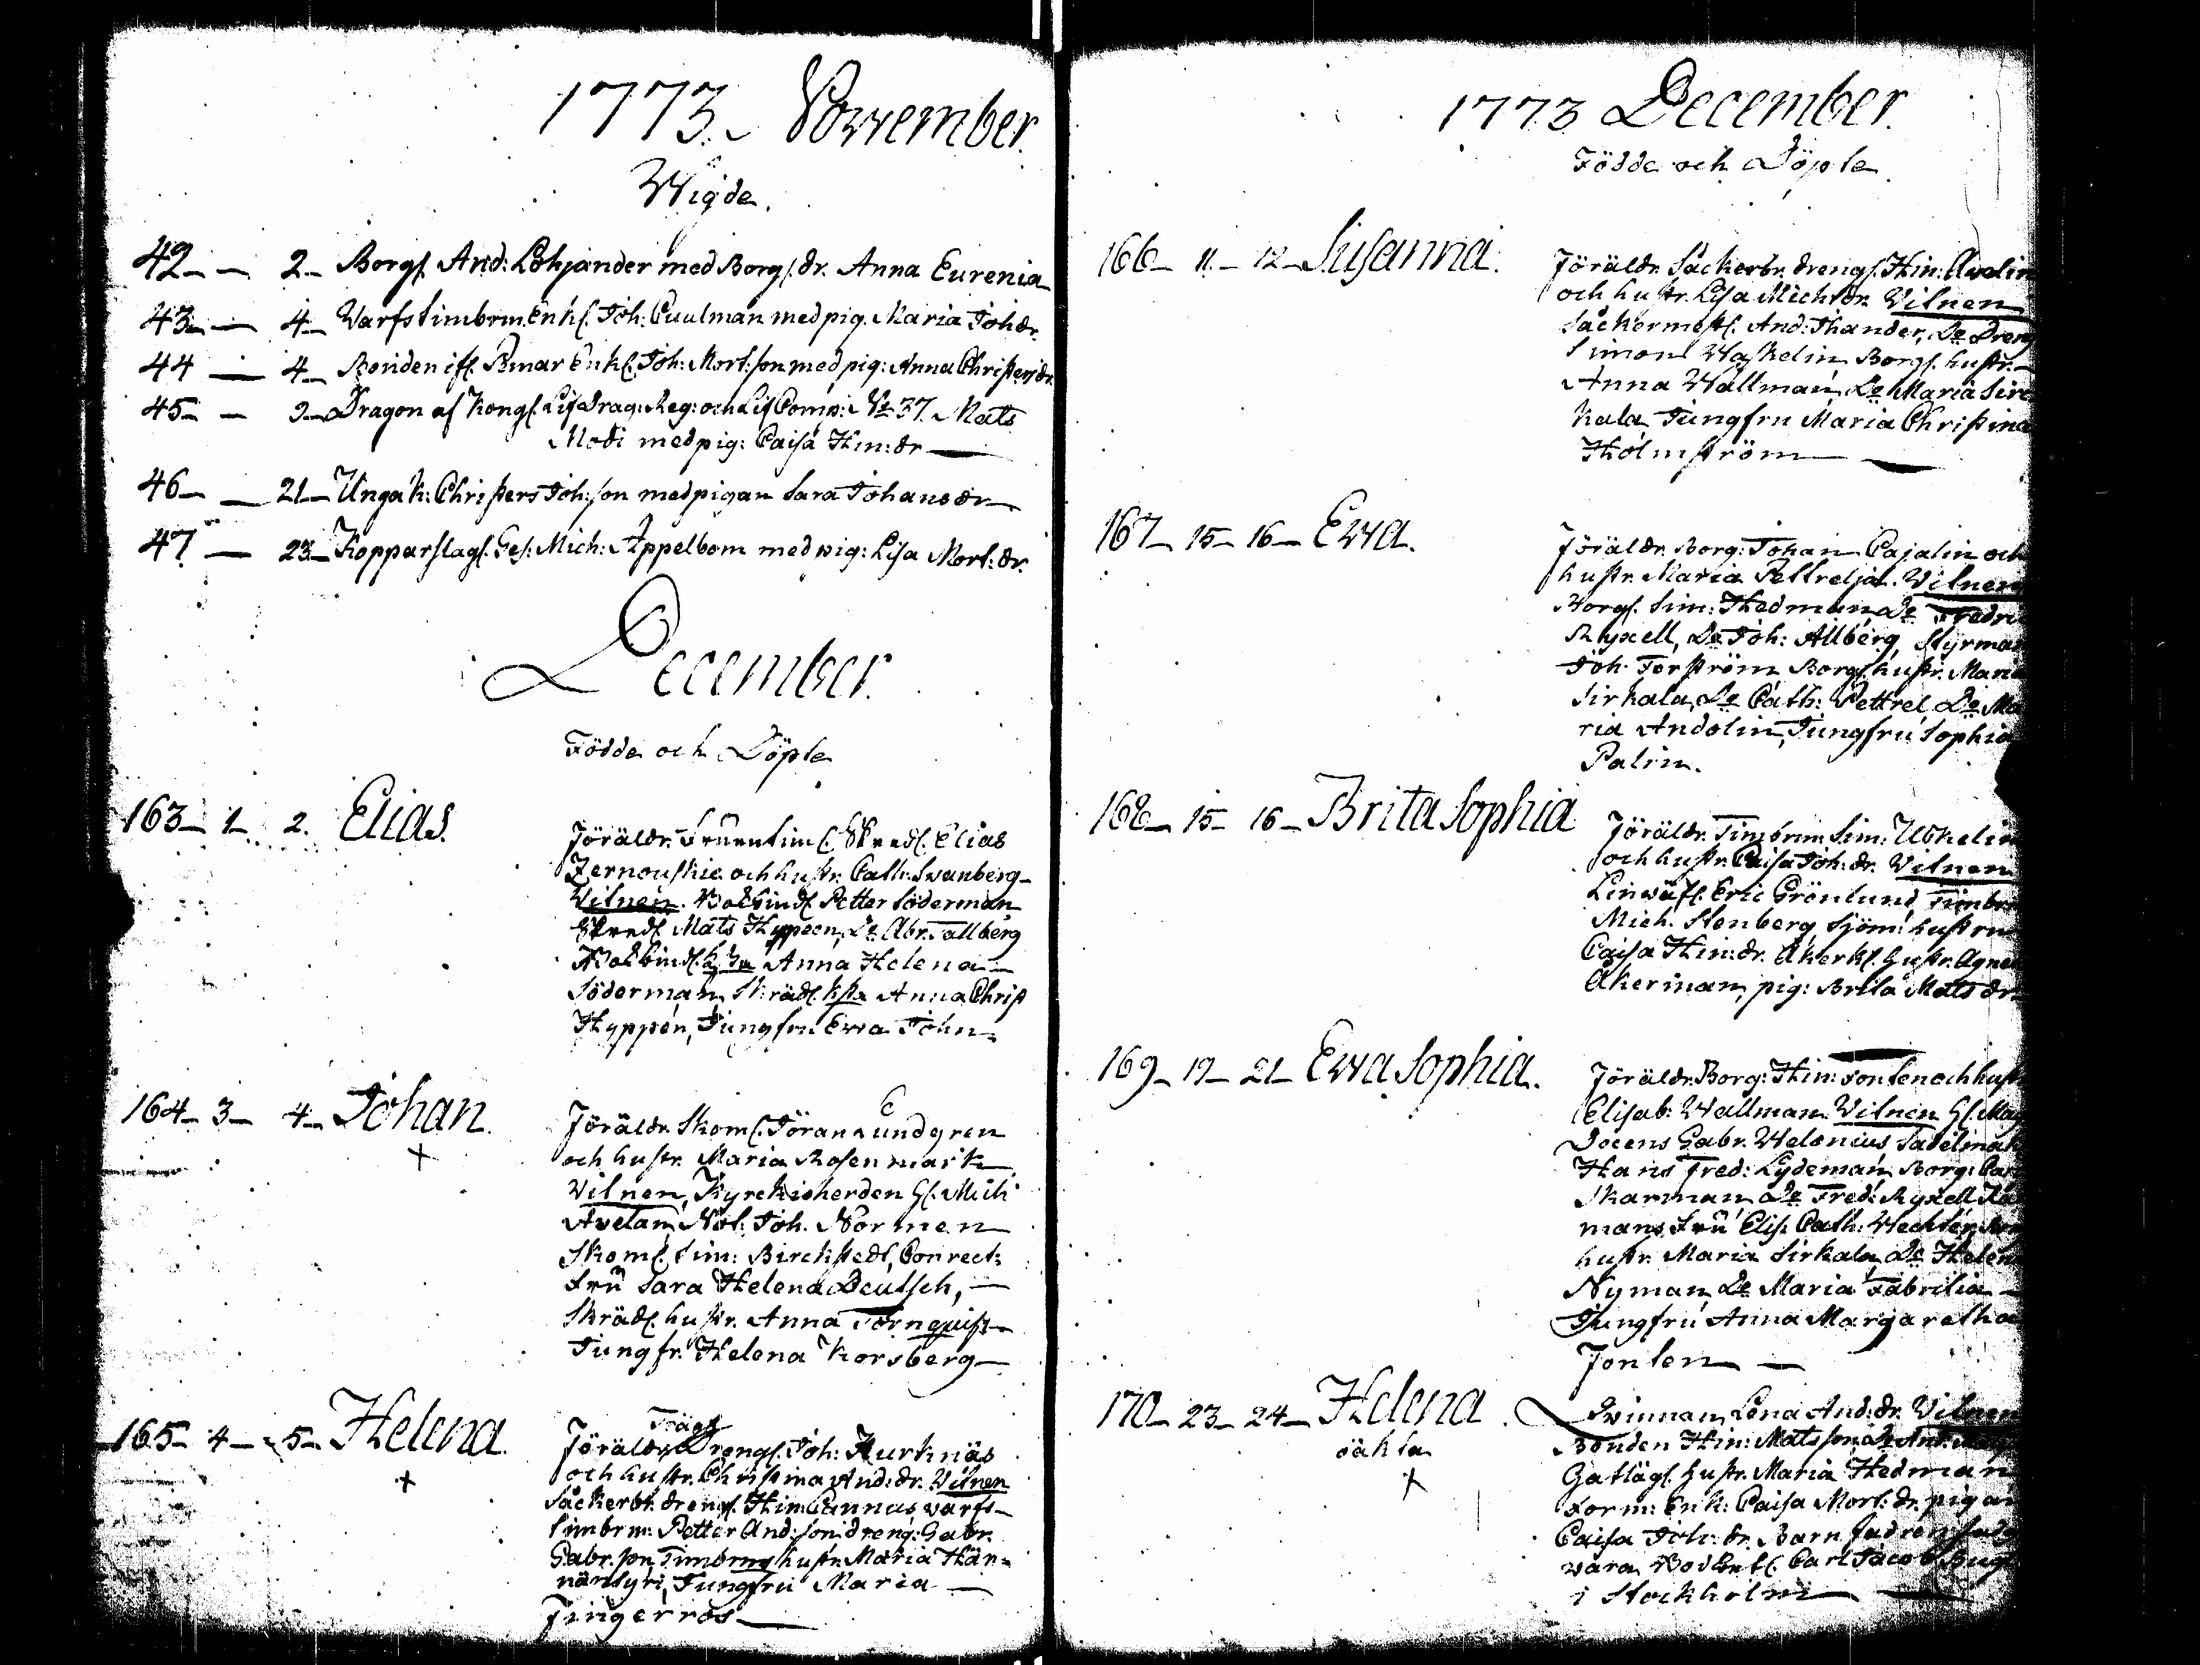 1773. November.
Wigde.
42 — 2 — Borgs. And: Lohjander med Borgs. dr. Anna Eurenia
43 — 4 — Varfstimbrm. Enkl. Joh: Cuulman med pig. Maria Joh:dr.
44 — 4 — Bonden ifr. Joh: Mort:son med pig: Anna Christersdr.
45 — 9 — Dragon af Kongl. Lif Drag: Reg: och Lif Comp: No 37. Mats
Modi med pig: Caisa Hin:dr —
46 — 21 — Unga k: Christers Joh:son med pigan Sara Johansdr
47 — 23 — Kopparslag. Ges: Mich: Appelbom med pig: Lisa Mort:dr.
December.
Födde och Döpte
163 — 1 — 2. Elias.
Föräldr. Elias
Zernouskie och hustr. Cath: Swanberg
Vitnen. Bokbind. Petter Söderman
Mats Hyppeen, Do Abr. Tallberg
Bokbind. Anna Helena
Söderman, Skräd. Anna Christ
Hyppén, Jungfru Ewa John
164 — 3 — 4 — Johan.
+
Föräldr. Skom. Jöran Lundgren
och hustr. Maria Rosenmark
Vitnen, Kyrckioherden Mich
Avelan, Not: Joh. Normen
Skom. Sim: Birckstedt, Conrect:
Fru Sara Helena Deutsch, —
Skräd. hustr. Anna Törnquist
Jungfr. Helena Korsberg —
165 — 4 — 5 — Helena.
+
Föräldr. Trägs Drengs. Joh: Kurknäs
och hustr. Christina And:dr. Vitnen
Såckerbr. drengs. Hin: Cannus varfs-
timbrm: Petter And:son dreng: Gabr.
Gabr.son, Timbrms hustr. Maria Hän-
näntyri, Jungfru Maria —
Fingerros —
1773 December.
Födde och Döpte.
166 — 11 — 12 — Susanna.
Föräldr. Såckerbr. drengs. Hin: Avelin
och hustr. Lisa Mich:dr. Vitnen
Såckermest. And: Thander, Do Dreng
Simon Waskelin Borgs. hustr.
Anna Wallman, Do Maria Sir
kala, Jungfru Maria Christina
Holmström —
167 — 15 — 16 — Ewa.
Föräldr. Borg: Johan Cajalin och
hustr. Maria Pettrelja. Vitnen
Borgs. Sim: Hedman, Do Fedri
Ryxell, Do Joh: Allberg, Styrman
Joh. Torström Borgs. hustr. Maria
Sirkala, Do Cath: Pettrel, Do Ma
ria Andolin, Jungfru Sophia
Palin.
168 — 15 — 16 — Brita Sophia
Föräldr. Timbrm: Sim: Utkelin
och hustr. Caisa Joh:dr. Vitnen
Linwäf. Eric Grönlund, Timbr
Mich. Stenberg, Sjöm: hustru
Caisa Hin:dr. Åkerk. hustr. Agne
Åkerman, pig: Brita Matsdr
169 — 19 — 21 — Ewa Sophia.
Föräldr. Borg: Hin: Fonten och hustr
Elisab: Wallman. Vitnen Mag
Docens Gabr. Welonius Sadelmak
Hans Fred: Lydeman, Borg:
Skarman, Do Fred: Ryxell
mans Fru Elis: Cath: Wechter,
hustr. Maria Sirkala, Do Helen
Nyman, Do Maria Fabritia —
Jungfru Anna Margaretha
Fonten —
170 — 23 — 24 — Helena.
oäkta
+
Qvinnan Lena And:dr. Vitnen
Bonden Hin: Matsson, Do
hustr. Maria Hedman
Enk: Caisa Mort:dr. pigan
Caisa Joh:dr. Barnfadren
vara Carl Jacob
i Stockholm —